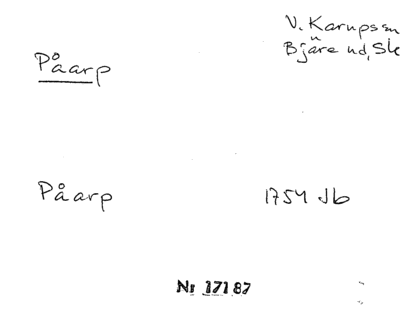 V. Karupssn
Bjäre hd, Sk
Påarp
Påarp 1754 Jb
Nr 17187